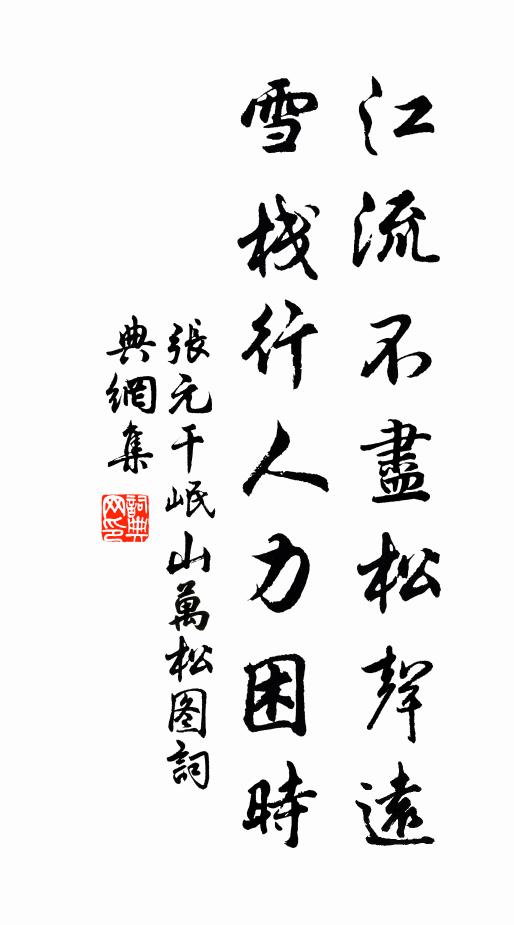 江流不盡松聲遠
雪棧行人力困時
張元干岷山萬松图詞
典網集
詞典网印